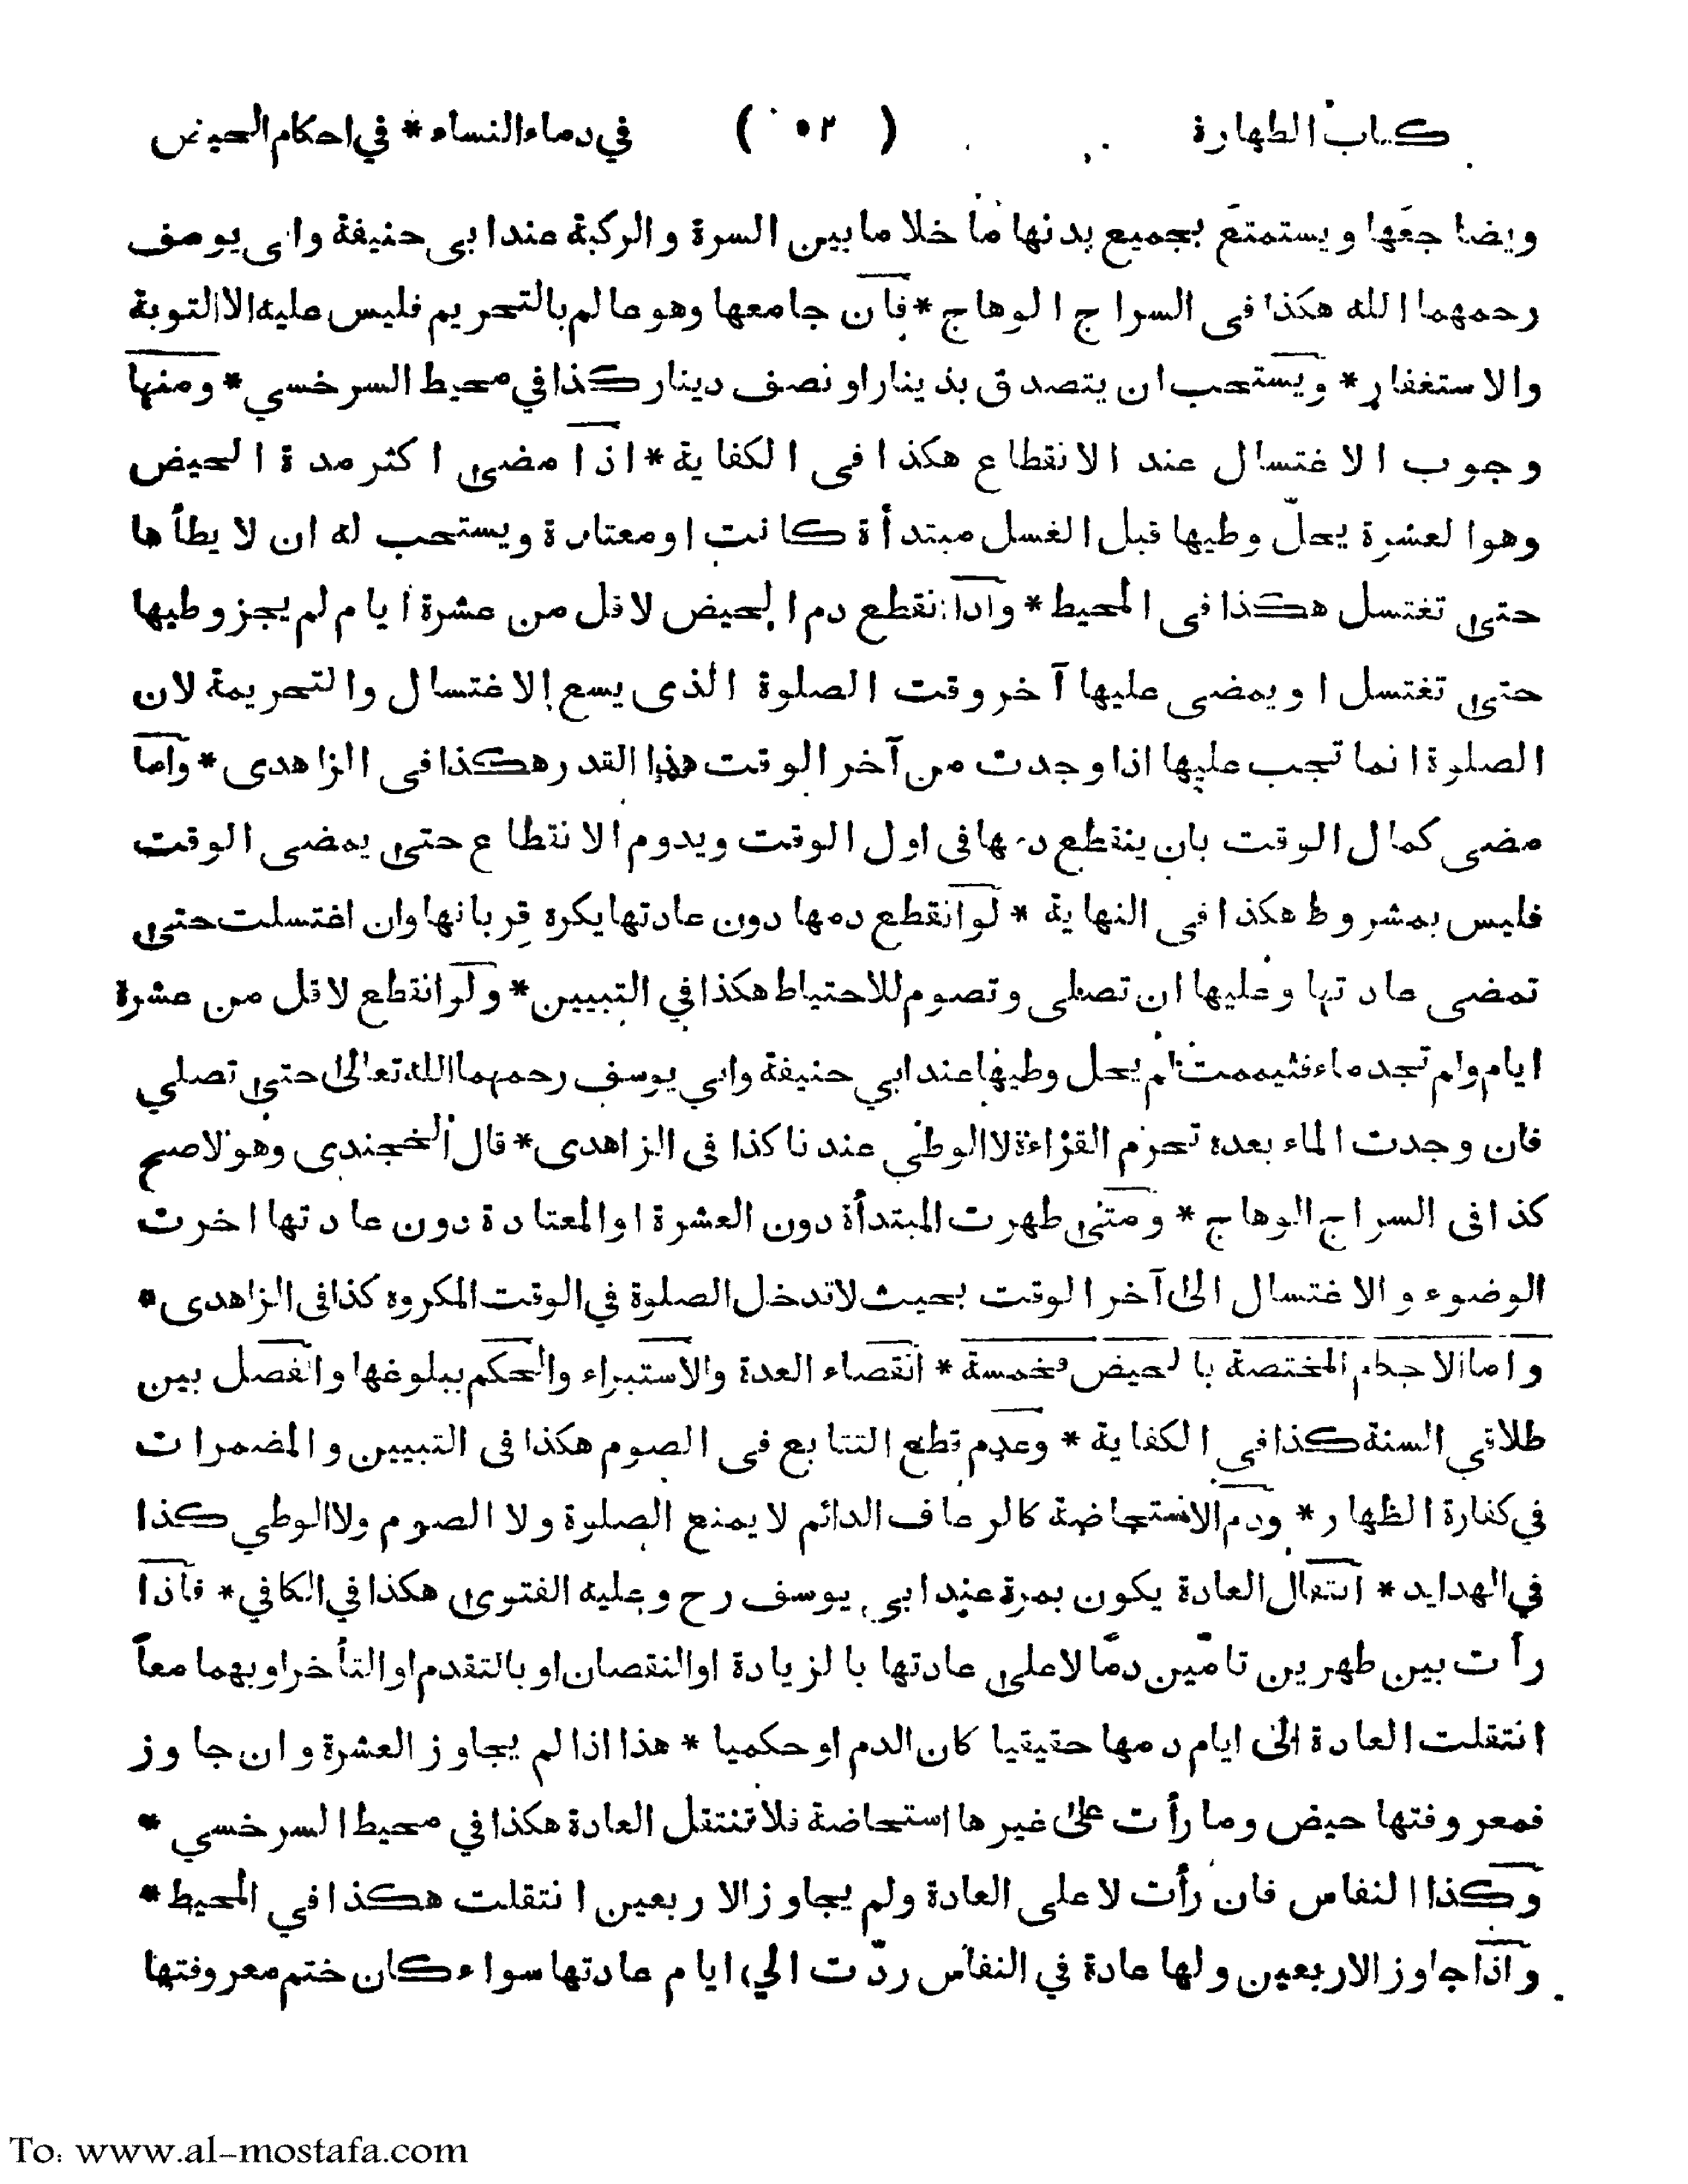 كتاب الطهارة ( ٥٢ ) في دماء النساء * في احكام الحيض
ويضاجعها ويستمتع بجميع بدنها ما خلا ما بين السرة والركبة عند ابي حنيفة وابي يوسف
رحمهما الله هكذا في السراج الوهاج * فان جامعها وهو عالم بالتحريم فليس عليه الا التوبة
والاستغفار * ويستحب ان يتصدق بدينار او نصف دينار كذا في محيط السرخسي * ومنها
وجوب الاغتسال عند الانقطاع هكذا في الكفاية * اذا مضى اكثر مدة الحيض
وهو العشرة يحلّ وطيها قبل الغسل مبتدأة كانت او معتادة ويستحب له ان لا يطأها
حتى تغتسل هكذا في المحيط * واذا انقطع دم الحيض لاقل من عشرة ايام لم يجز وطيها
حتى تغتسل او يمضى عليها آخر وقت الصلوة الذى يسع الاغتسال والتحريمة لان
الصلوة انما تجب عليها اذا وجدت من آخر الوقت هذا القدر هكذا في الزاهدى * واما
مضى كمال الوقت بان ينقطع دمها في اول الوقت ويدوم الانقطاع حتى يمضى الوقت
فليس بمشروط هكذا في النهاية * لو انقطع دمها دون عادتها يكره قربانها وان اغتسلت حتى
تمضى عادتها وعليها ان تصلى وتصوم للاحتياط هكذا في التبيين * ولو انقطع لاقل من عشرة
ايام ولم تجد ماء فتيممت لم يحل وطيها عند ابي حنيفة وابي يوسف رحمهما الله تعالى حتى تصلي
فان وجدت الماء بعده تحرم القراءة لا الوطئ عندنا كذا في الزاهدى * قال الخجندى وهو الاصح
كذا في السراج الوهاج * ومتى طهرت المبتدأة دون العشرة او المعتادة دون عادتها اخرت
الوضوء والاغتسال الى آخر الوقت بحيث لا تدخل الصلوة في الوقت المكروه كذا في الزاهدى *
واما الاحكام المختصة بالحيض فخمسة * انقضاء العدة والاستبراء والحكم ببلوغها والفصل بين
طلاقي السنة كذا في الكفاية * وعدم قطع التتابع في الصوم هكذا في التبيين والمضمرات
في كفارة الظهار * ودم الاستحاضة كالرعاف الدائم لا يمنع الصلوة ولا الصوم ولا الوطي كذا
في الهدايه * انتقال العادة يكون بمرة عند ابي يوسف رح وعليه الفتوى هكذا في الكافي * فاذا
رأت بين طهرين تامّين دمًا لا على عادتها بالزيادة او النقصان او بالتقدم او التأخر او بهما معاً
انتقلت العادة الى ايام دمها حقيقيا كان الدم او حكميا * هذا اذا لم يجاوز العشرة وان جاوز
فمعروفتها حيض وما رأت على غيرها استحاضة فلا تنتقل العادة هكذا في محيط السرخسي *
وكذا النفاس فان رأت لا على العادة ولم يجاوز الاربعين انتقلت هكذا في المحيط *
واذا جاوز الاربعين ولها عادة في النفاس ردّت الى ايام عادتها سواء كان ختم معروفتها
To: www.al-mostafa.com